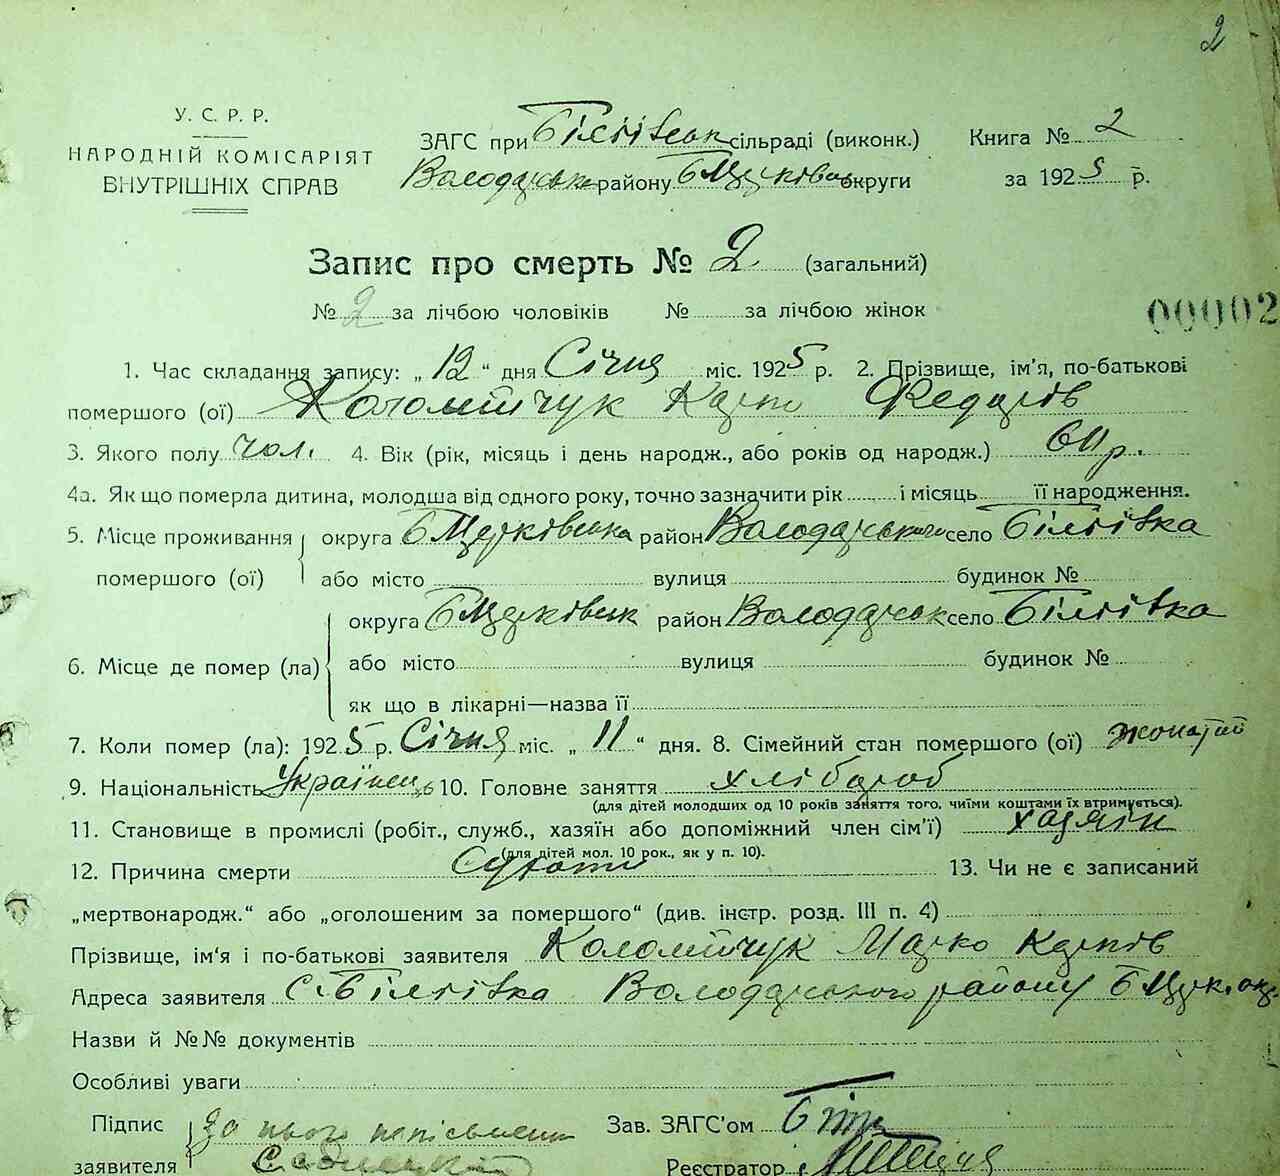 2
У. С. Р. Р.
НАРОДНІЙ КОМІСАРІЯТ
ВНУТРІШНІХ СПРАВ
ЗАГС при сільраді (виконк.)
району Б Церківськ округи
Книга № 2
за 1925 р.
Запис про смерть № 2 (загальний)
№ 2 за лічбою чоловіків № за лічбою жінок
00002
1. Час складання запису: „12“ дня Січня міс. 1925 р. 2. Прізвище, ім'я, по-батькові
помершого (ої) Коломійчук Карпо Федорів
3. Якого полу чол. 4. Вік (рік, місяць і день народж., або років од народж.) 60 р.
4а. Як що померла дитина, молодша від одного року, точно зазначити рік і місяць її народження.
5. Місце проживання округа Б Церківська район Володарського село Біліївка
помершого (ої) або місто вулиця будинок №
округа Б Церківськ район Володарськ село Біліївка
6. Місце де помер (ла) або місто вулиця будинок №
як що в лікарні—назва її
7. Коли помер (ла): 1925 р. Січня міс. „11“ дня. 8. Сімейний стан помершого (ої) жонатий
9. Національність Українець 10. Головне заняття хлібороб
(для дітей молодших од 10 років заняття того, чиїми коштами їх втримується).
11. Становище в промислі (робіт., служб., хазяїн або допоміжний член сім'ї) хазяїн
(для дітей мол. 10 рок., як у п. 10).
12. Причина смерти Сухоти 13. Чи не є записаний
„мертвонародж.“ або „оголошеним за помершого“ (див. інстр. розд. III п. 4)
Прізвище, ім'я і по-батькові заявителя Коломійчук Марко Карпів
Адреса заявителя С. Біліївка Володарського району Б Церк. окр.
Назви й №№ документів
Особливі уваги
Підпис За нього неписьменн Зав. ЗАГС'ом
заявителя Реєстратор